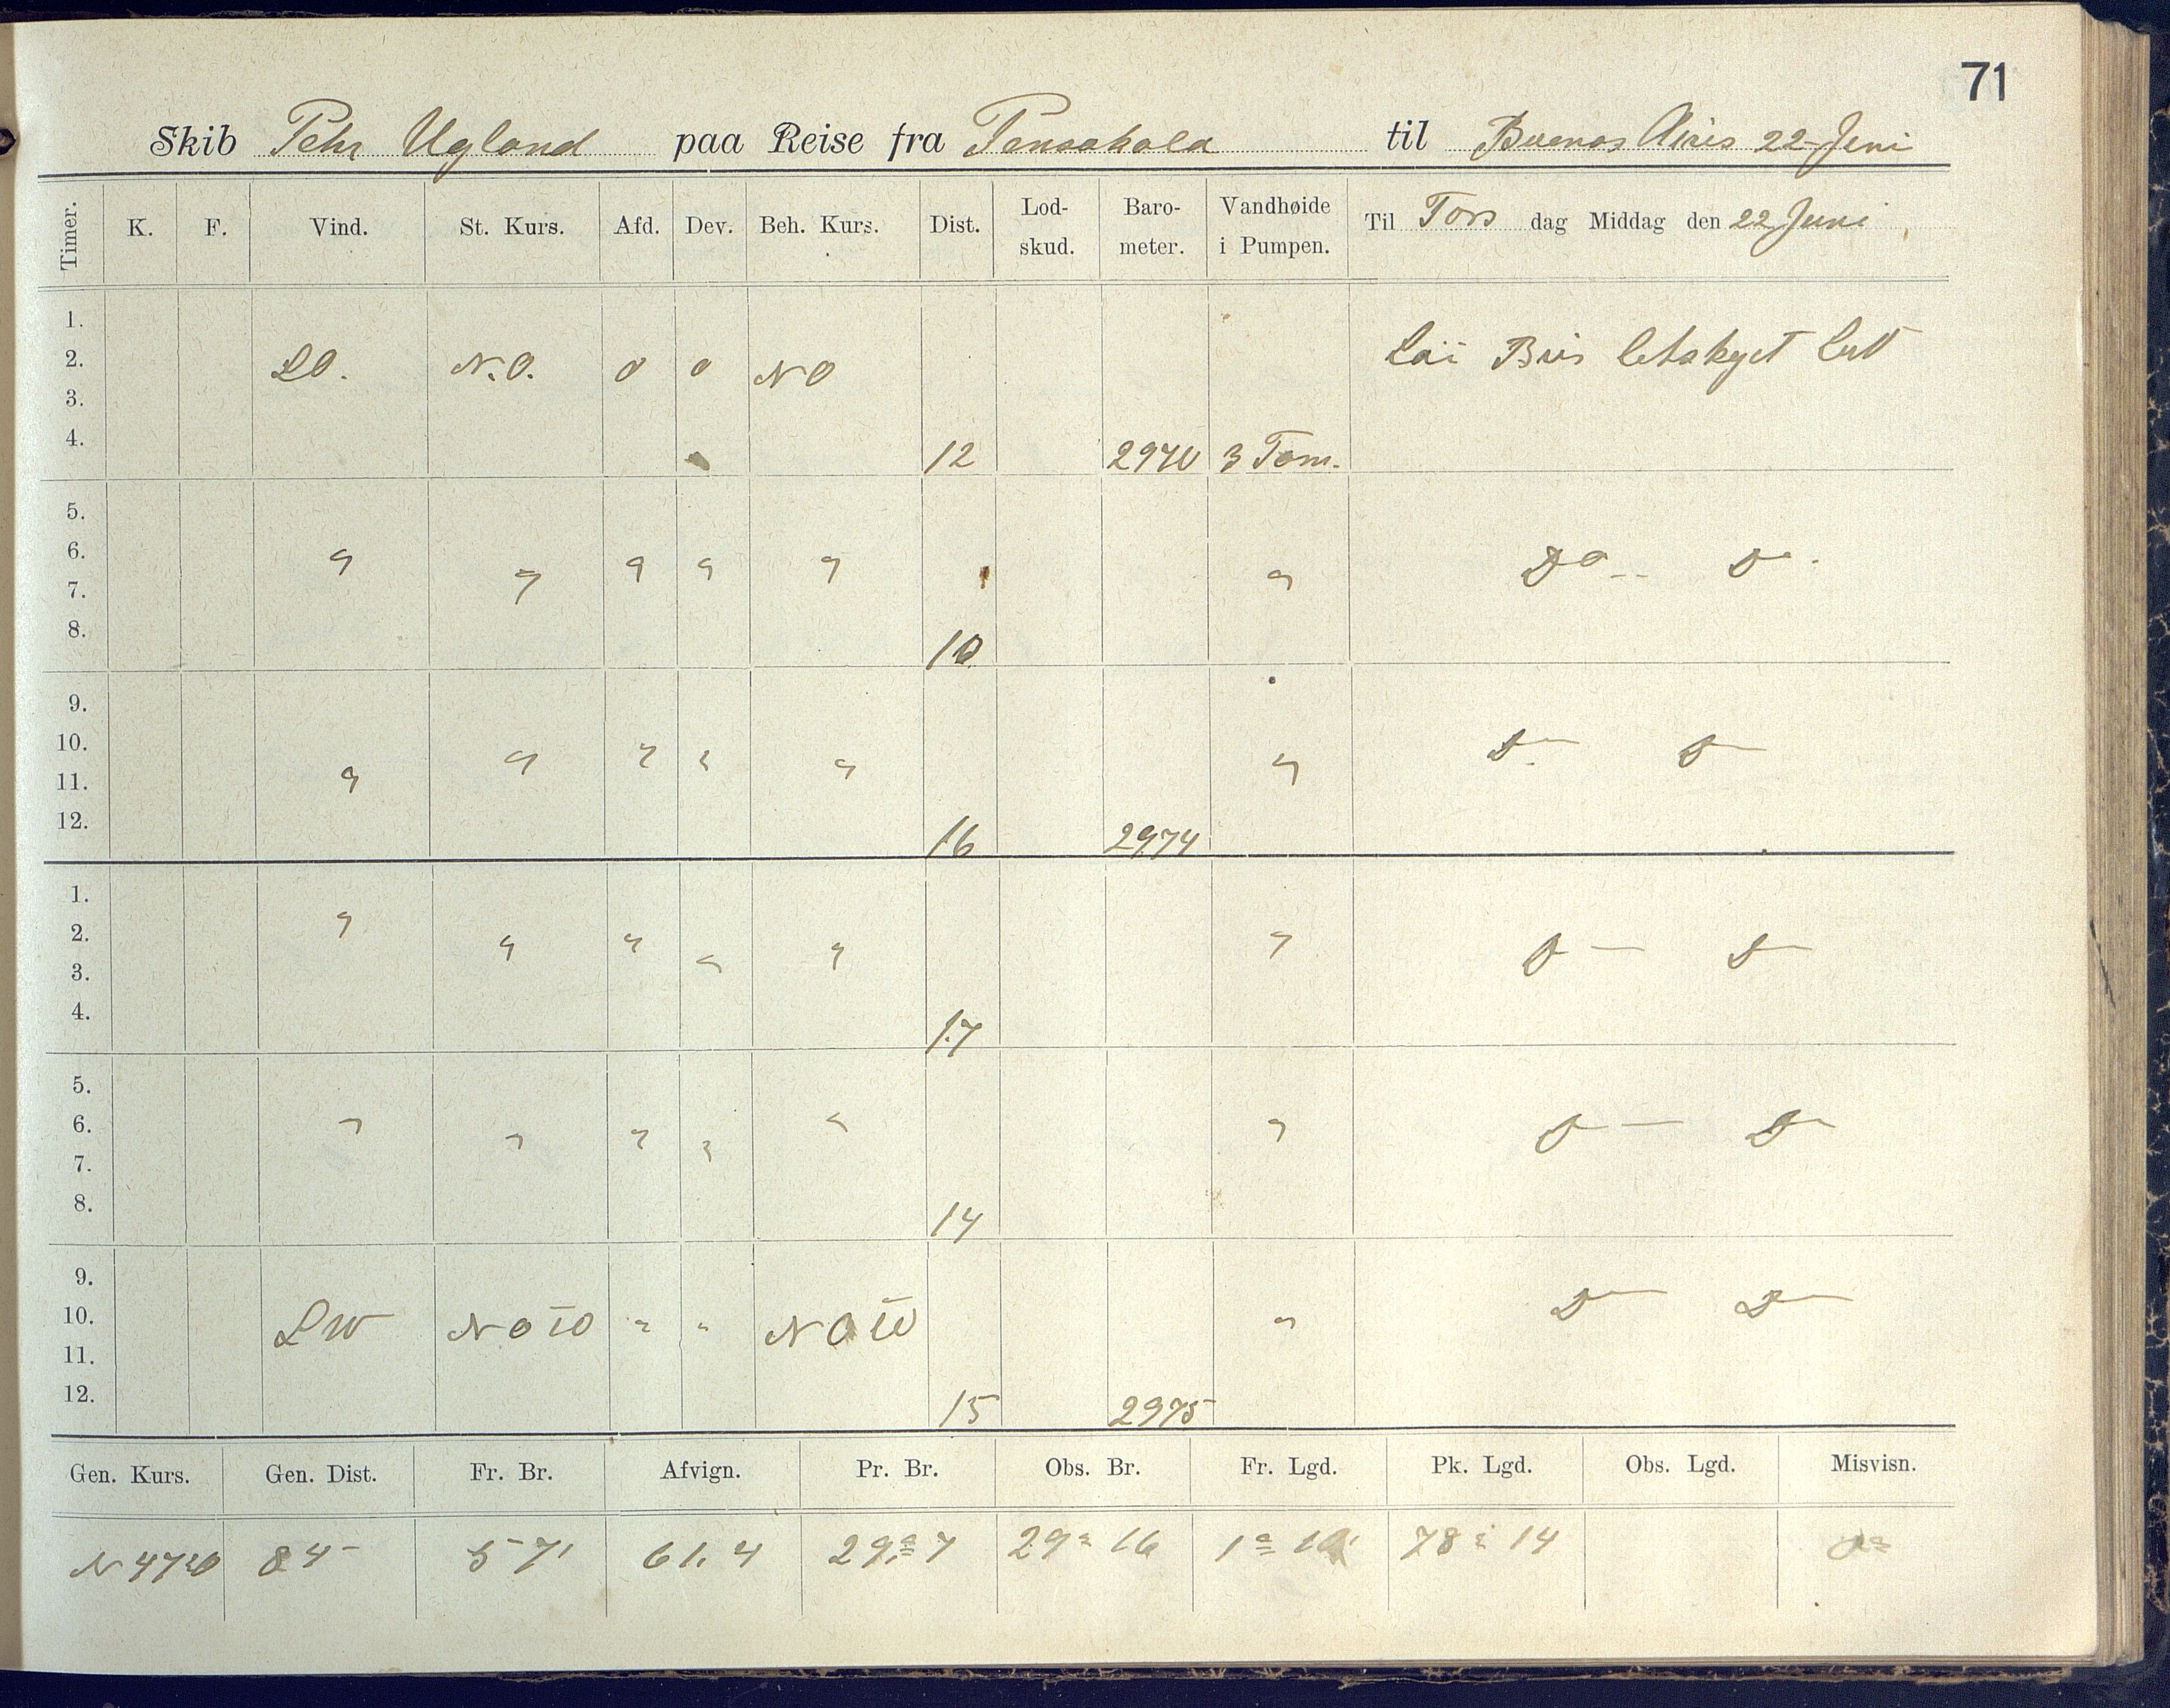 71
Skib Pehr Ugland paa Reise fra Pensakola til Buenos Aires 22 Juni
Timer. K. F. Vind. St. Kurs. Afd. Dev. Beh. Kurs. Dist. Lod-skud. Baro-meter. Vandhøide i Pumpen. Til Tors dag Middag den 22 Juni
1.
2. SO. N.O. 0 0 NO Laü Bris letskyet luft
3.
4. 12 2970 3 Tom.
5.
6. " " " " " " Do -- D -
7.
8. 10
9.
10. " " " " " " D - D -
11.
12. 16 2974
1.
2. " " " " " " D - D -
3.
4. 17
5.
6. " " " " " " D - D -
7.
8. 14
9.
10. SW NOtO " " NOtO " D - D -
11.
12. 15 2975
Gen. Kurs. Gen. Dist. Fr. Br. Afvign. Pr. Br. Obs. Br. Fr. Lgd. Pk. Lgd. Obs. Lgd. Misvisn.
N 47 O 84 57' 61.4 29° 7 29° 16 1° 78° 14